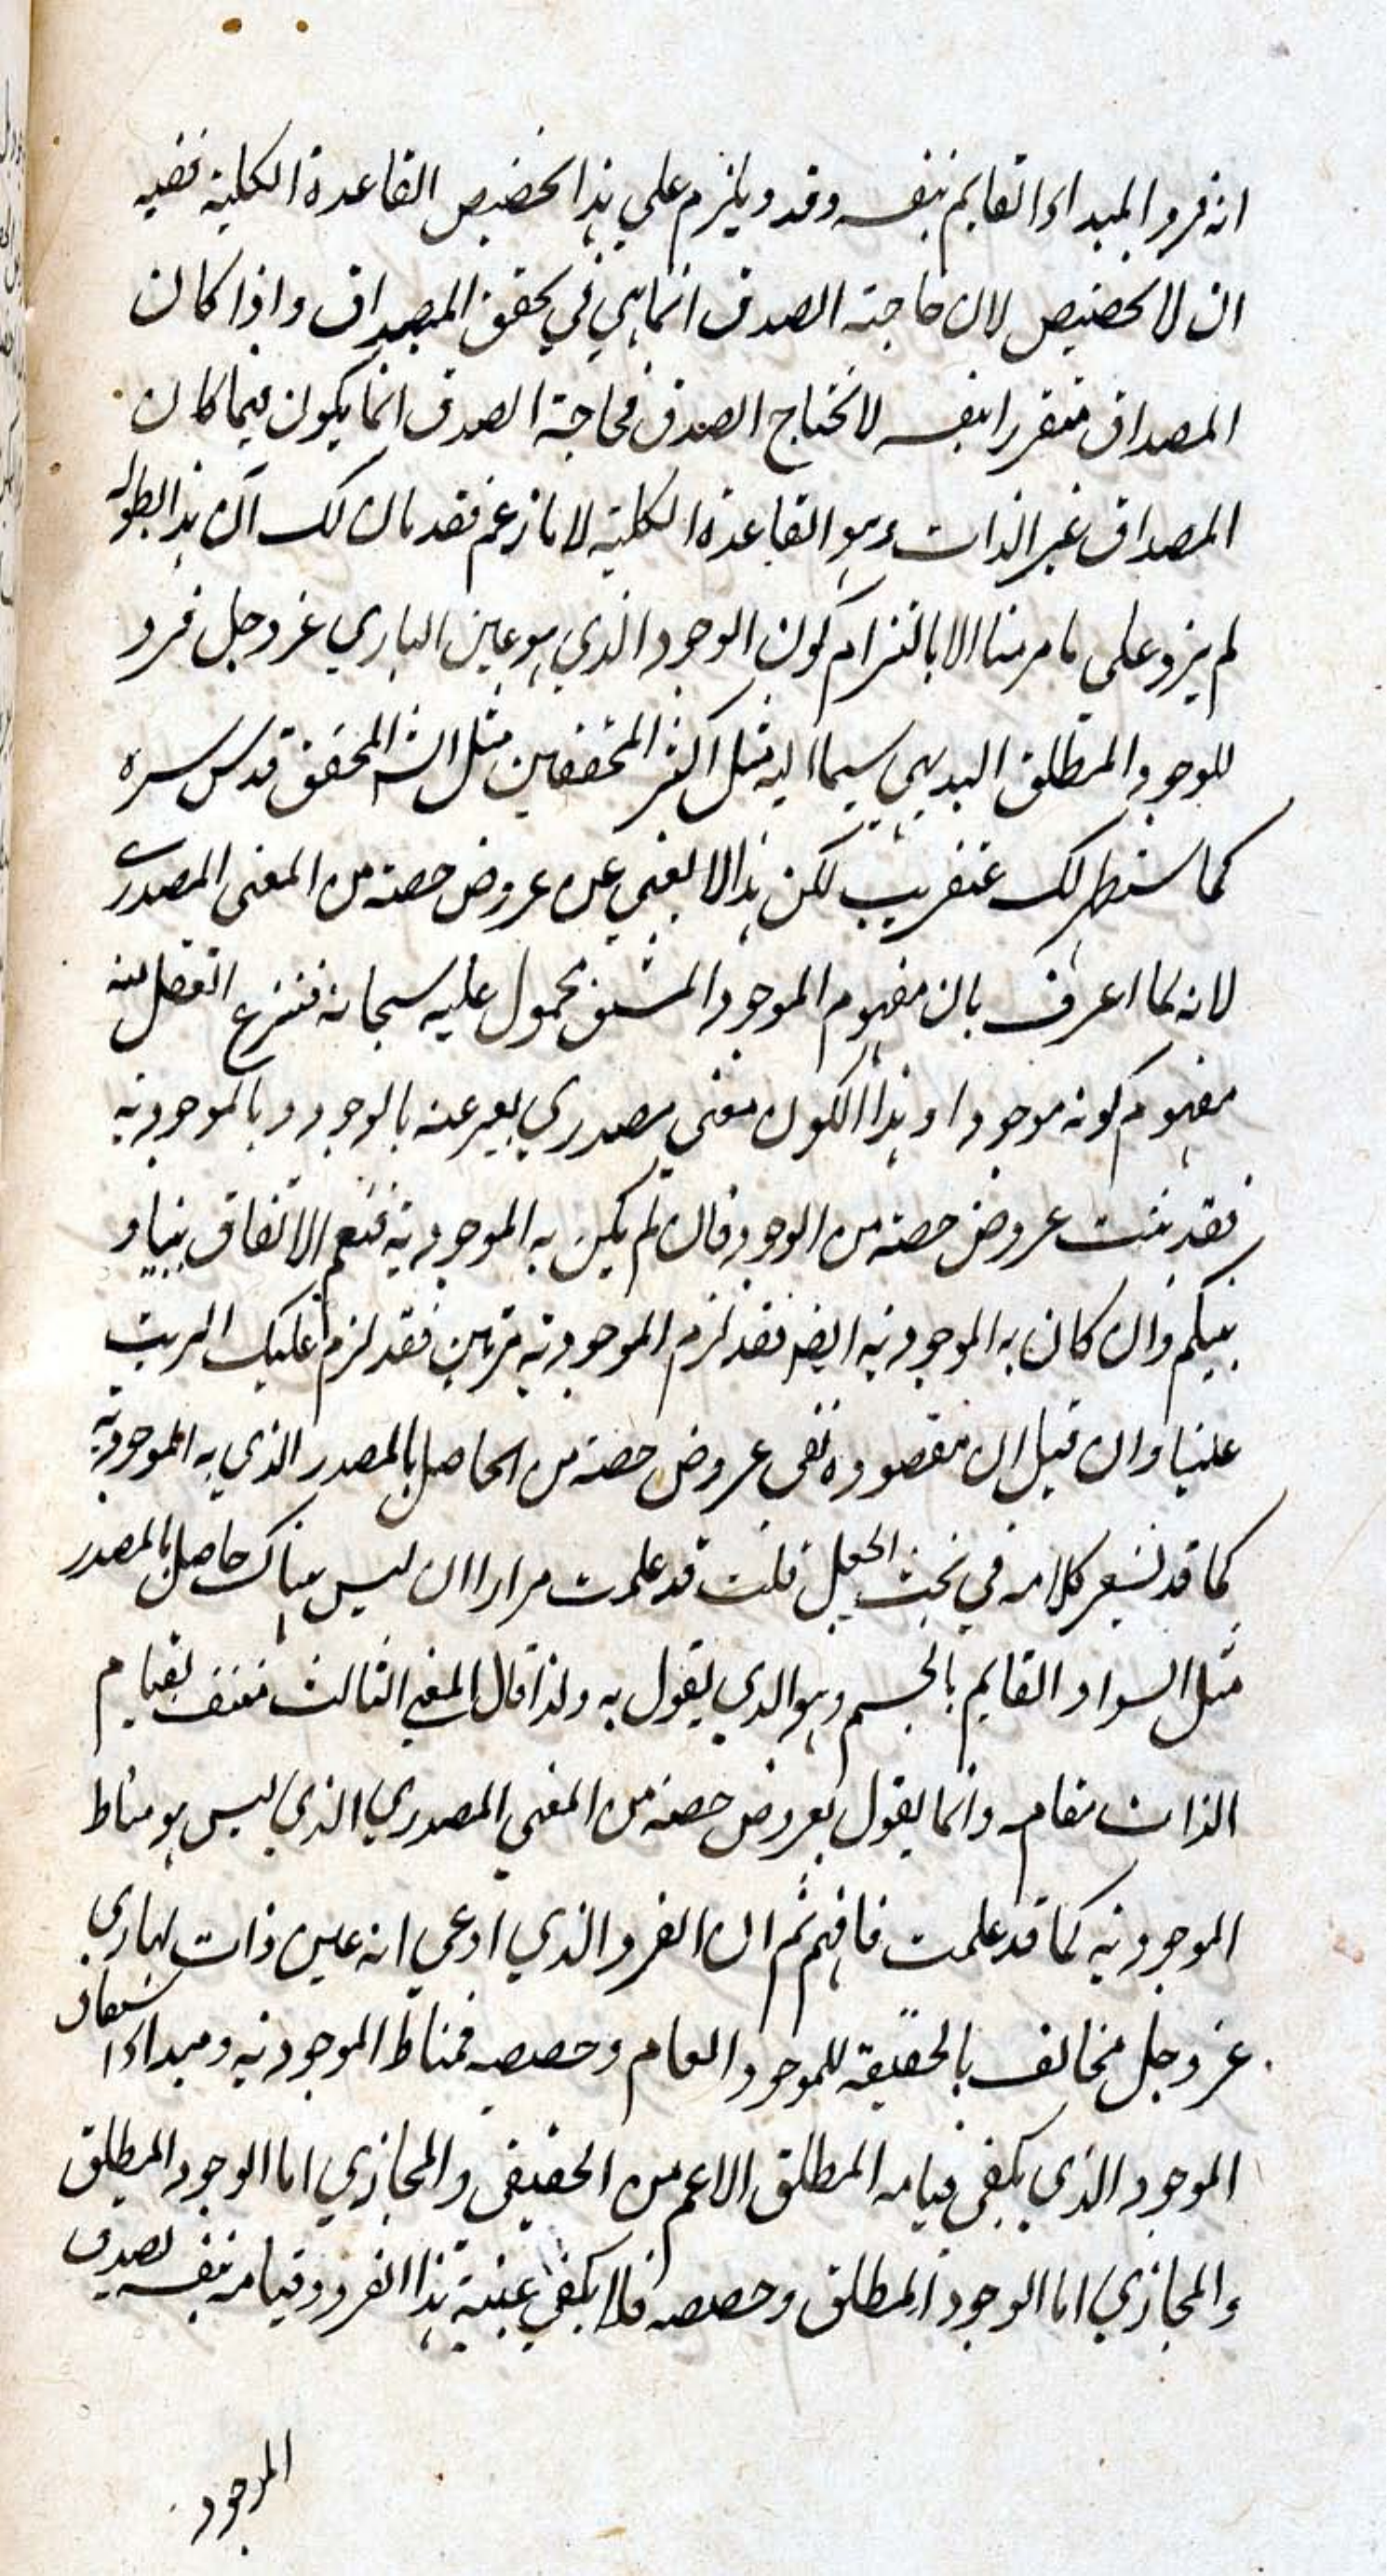 انه فرد المبداء القايم بنفسه وقد ويلزم علي هذا تخصيص القاعدة الكلية ففيه
ان لا تخصيص لان حاجته الصدق انما هي في تحقق المصداق واذا كان
المصداق متقررا بنفسه لا تحتاج الصدق فحاجة الصدق انما يكون فيما كان
المصداق غير الذات وهو القاعدة الكلية لا ما زعم فقد بان لك ان هذا بطوله
لم يزد علي ما مر منا الا بالتزام كون الوجود الذي هو عين الباري عز وجل فرد
للوجود المطلق البديهي سيما اليه مثل اكثر المحققين مثل الش المحقق قدس سره
كما سنظهر لك عنقريب لكن هذا لا يغني عن عروض حصته من المعني المصدري
لانه لما اعرف بان مفهوم الموجود المشتق محمول عليه سبحانه فنتزع العقل منه
مفهوم كونه موجودا وهذا الكون معني مصدري يعبر عنه بالوجود وبالموجودية
فقد ثبت عروض حصته من الوجود فان لم يكن به الموجودية فنعم الاتفاق بيننا و
بينكم وان كان به الموجودية ايضا فقد لزم الموجودية مرتين فقد لزم عليك الريب
علينا وان قيل ان مقصوده نفي عروض حصته من الحاصل بالمصدر الذي به الموجودية
كما قد يشعر كلامه في بحث الجعل قلت قد علمت مرارا ان ليس هناك حاصل بالمصدر
مثل السواد القايم بالجسم وهو الذي يقول به ولذا قال المعني الثالث منتف لقيام
الذات مقامه وانما يقول بعروض حصته من المعني المصدري الذي ليس هو مناط
الموجودية كما قد علمت فافهم ثم ان الفرد الذي ادعي انه عين ذات الباري
عز وجل مخالف بالحقيقة للموجود العام وحصصه فمناط الموجودية ومبداء اشتقاق
الموجود الذي يكفي قيامه المطلق الاعم من الحقيقي والمجازي اما الوجود المطلق
والمجازي اما الوجود المطلق وحصصه فلا يكفي عينية هذا الفرد وقيامه بنفسه لصدق
الموجود